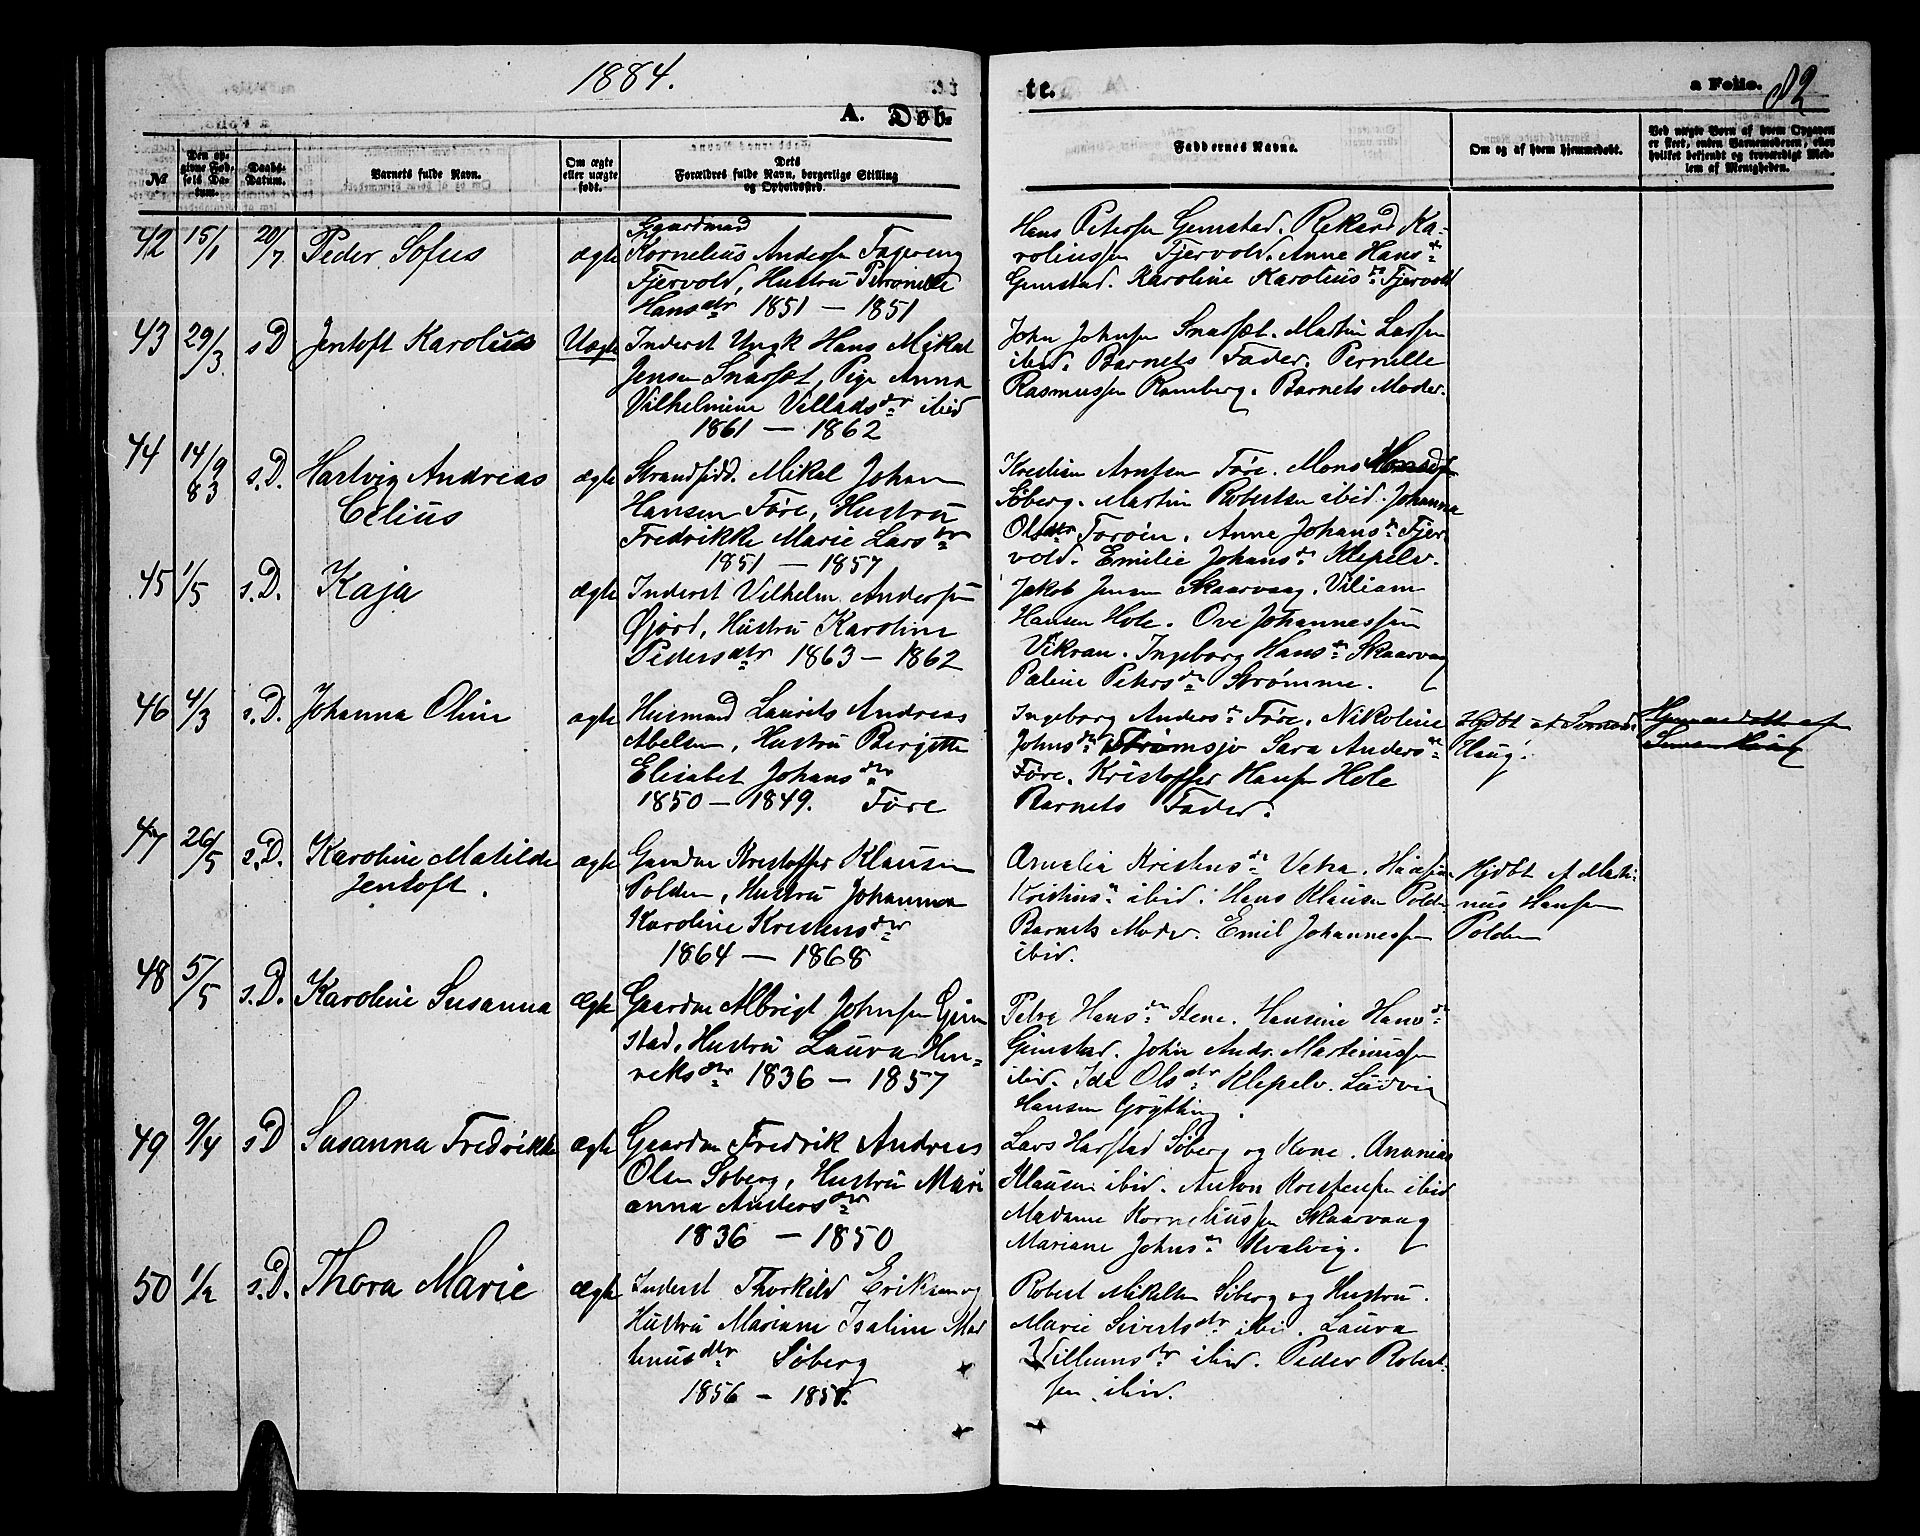 1884.
A. Døb-
te.
a Folio. 82
№
Den op-
givne Fød-
sels Da-
tum.
Daabs-
Datum.
Barnets fulde Navn.
Om ægte
eller uægte
født.
Dets
Forældres fulde Navn, borgerlige Stilling
og Opholdssted.
Faddernes Navne.
Om og af hvem hjemmedøbt.
Ved uægte Børn af hvem Opgaven
er skeet, enten Barnemoderen, eller
hvilket bekjendt og troværdigt Med-
lem af Menigheden.
42 15/1 20/7 Peder Sofus ægte
Gaardmand
Kornelius Andersen Fagereng
Fjervold, Hustru Petronelle
Hansdtr 1851 — 1851
Hans Petersen Gimstad. Rikard Ka-
roliussen Fjervold. Anne Hansd.
Gimstad. Karoline Karoliusd. Fjervold
43 29/3 s D Jentoft Karolius Uægte
Inderst Ungk Hans Mikal
Jensen Snarset, Pige Anna
Vilhelmine Villadsdtr ibid
1861 — 1862
John Johnsen Snarset. Martin Larsen
ibid. Barnets Fader. Pernille
Rasmussen Ramberg. Barnets Moder.
44 14/9 83 s.D. Hartvig Andreas
Celius
ægte
Strandsidd. Mikal Johan
Hansen Føre, Hustru
Fredrikke Marie Larsdtr
1851 — 1857
Kristian Arntsen Føre. Mons
Søberg. Martin Robertsen ibid. Johanna
Olsdtr Forøen. Anne Johansd. Fjer-
vold. Emilie Johansd. Klepelv.
45 1/5 s.D. Kaja ægte
Inderst Vilhelm Andersen
Øjord, Hustru Karoline
Pedersdtr 1863 — 1862
Jakob Jensen Skaarvaag. Viliam
Hansen Hole. Ove Johannessen
Vikran. Ingeborg Hansd. Skaarvaag
Paline Petersd. Strømme.
46 4/3 s.D. Johanna Oline ægte
Husmand Laurits Andreas
Abelsen, Hustru Bergitte
Elisabet Johansdtr
1850 — 1849. Føre
Ingeborg Andersd. Føre. Nikoline
Johnsd. Strømsjø Sara Andersd.
Føre. Kristoffer Hansen Hole
Barnets Fader.
Hjdbt af
Haug.
47 26/5 s.D. Karoline Matilde
Jentoft.
ægte
Gaardm Kristoffer Klausen
Polden, Hustru Johanna
Karoline Kristensdtr
1864 — 1868
Amalia Kristensd. Vetra.
Kristinsd. ibid. Hans Klausen Polden
Barnets Moder. Emil Johannessen
ibid.
Hjdbt af Marti-
nus Hansen
Polden
48 5/5 s.D. Karoline Susanna Ægte
Gaardm Albrigt Johnsen Gim
stad, Hustru Laura Hen-
reksdtr 1836 — 1857
Petra Hansd. Stene. Hansine Hansd.
Gimstad. John Andr. Martinussen
ibid. Ida Olsdtr Klepelv. Ludvig
Hansen Grytting.
49 9/4 s D Susanna Fredrikke ægte
Gaardm Fredrik Andreas
Olsen Søberg, Hustru Mari
anna Andersdtr
1836 — 1850
Lars Harstad Søberg og Kone. Ananias
Klausen ibid. Anton Kristensen ibid
Madame Korneliussen Skaarvaag
Mariane Johnsd. Kvalvig.
50 1/2 s.D. Thora Marie ægte
Inderst Thorkild Eriksen og
Hustru Mariane Isaline Mar
tinusdtr Søberg
1856 — 1858.
Robert Mikelsen Søberg og Hustru.
Marie Sivertsdtr ibid. Laura
Villiumsdtr ibid. Peder Robert-
sen ibid.